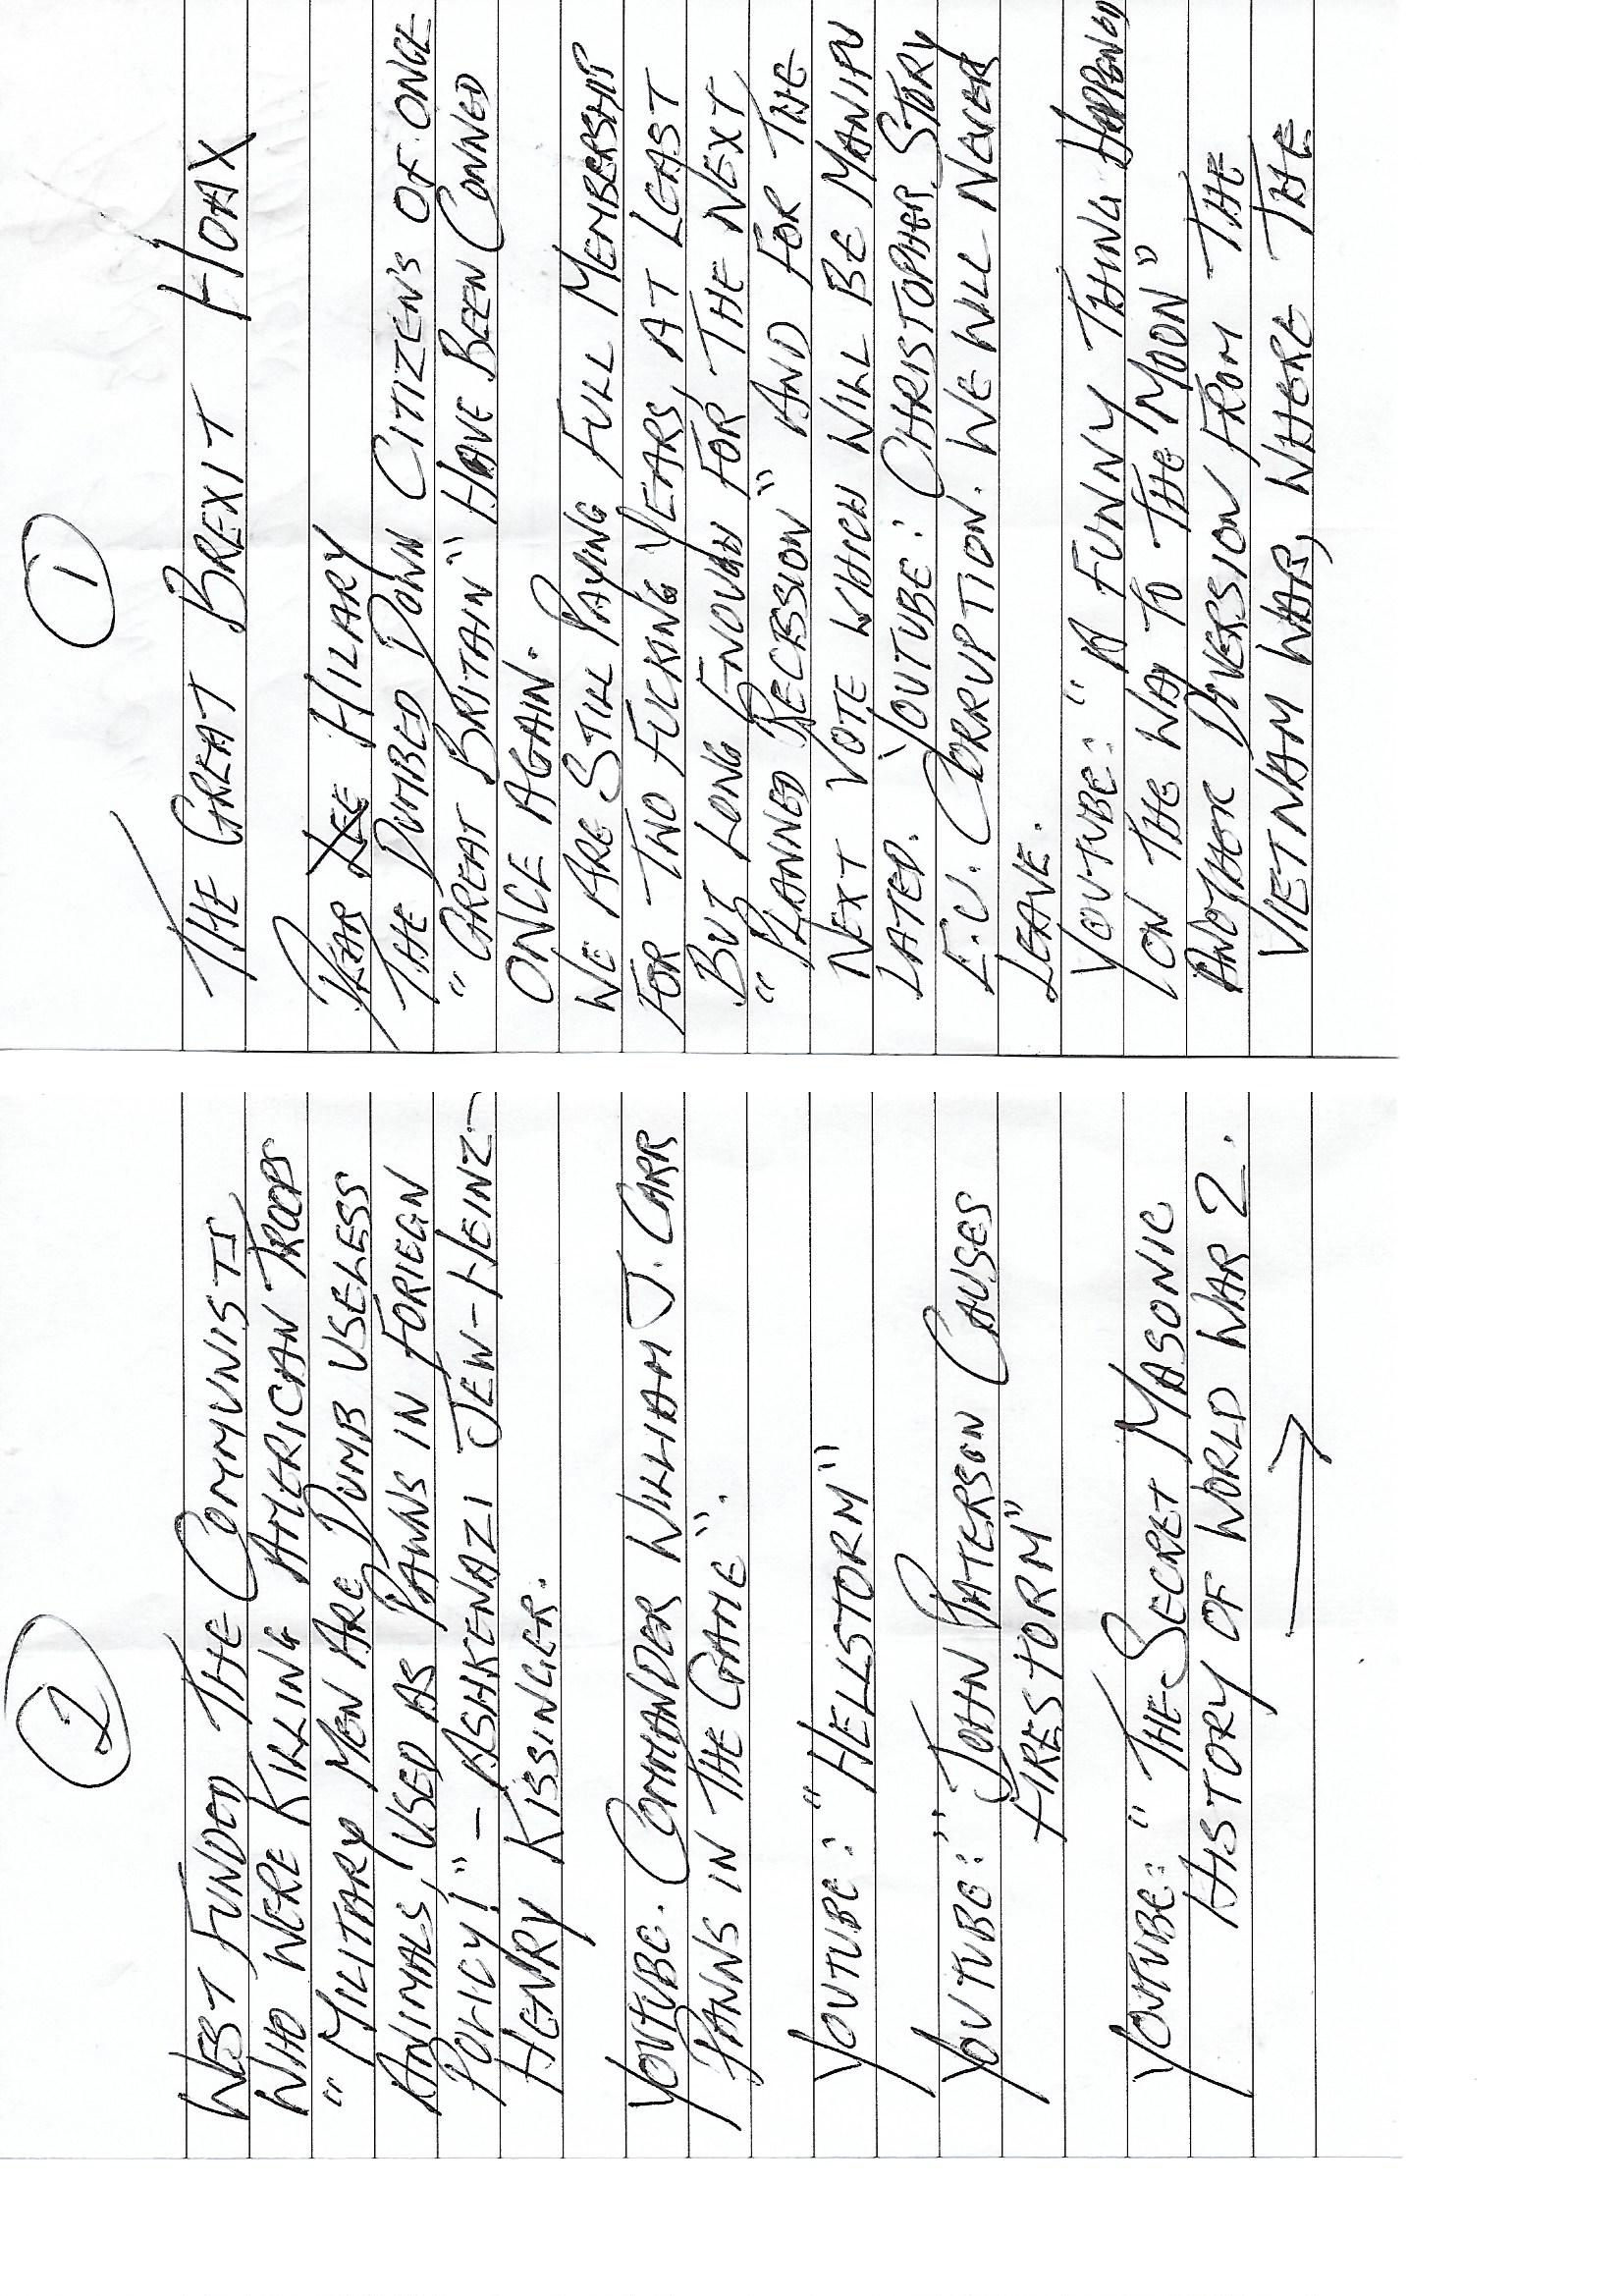 1
THE GREAT BREXIT HOAX
DEAR LEE HILLARY
THE DUMBED DOWN CITIZEN'S OF ONCE
"GREAT BRITAIN" HAVE BEEN CONNED
ONCE AGAIN.
WE ARE STILL PAYING FULL MEMBERSHIP
FOR TWO FUCKING YEARS, AT LEAST
BUT LONG ENOUGH FOR THE NEXT
"PLANNED RECESSION" AND FOR THE
NEXT VOTE WHICH WILL BE MANIPU
LATED. YOUTUBE: CHRISTOPHER STORY
E.U. CORRUPTION. WE WILL NEVER
LEAVE.
YOUTUBE: "A FUNNY THING HAPPENED
ON THE WAY TO THE MOON"
ANOTHER DIVERSION FROM THE
VIETNAM WAR, WHERE THE
2
WEST FUNDED THE COMMUNISTS
WHO WERE KILLING AMERICAN TROOPS
"MILITARY MEN ARE DUMB USELESS
ANIMALS, USED AS PAWNS IN FORIEGN
POLICY!" - ASHKENAZI JEW-HEINZ-
HENRY KISSINGER.
YOUTUBE. COMMANDER WILLIAM J. CARR
PAWNS IN THE GAME".
YOUTUBE: "HELLSTORM"
YOUTUBE: "JOHN PATERSON CAUSES
FIRESTORM"
YOUTUBE: "THE SECRET MASONIC
HISTORY OF WORLD WAR 2.